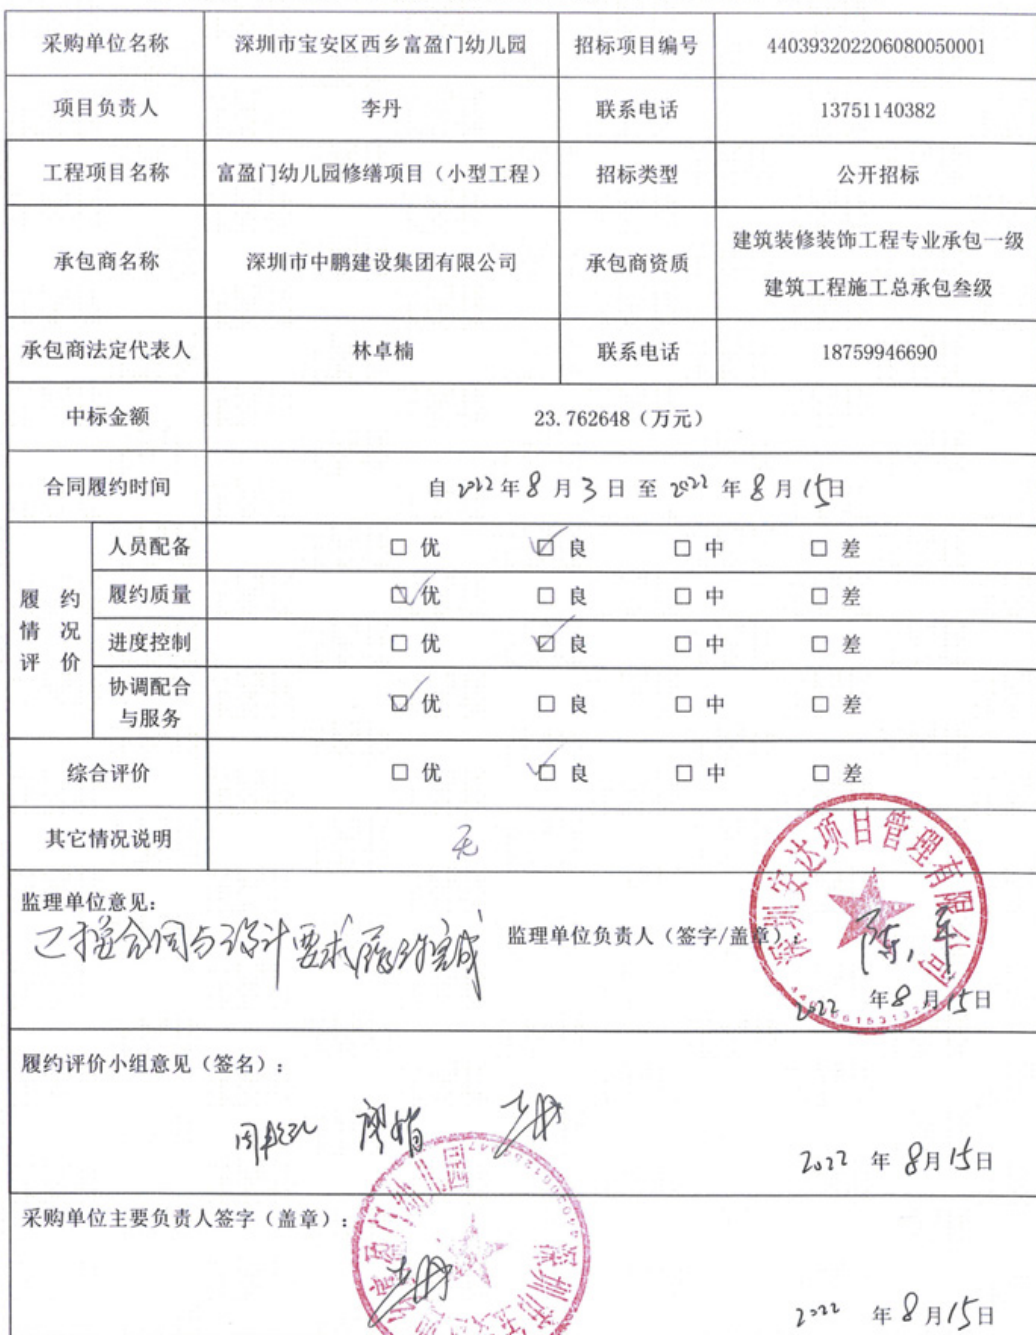 采购单位名称 深圳市宝安区西乡富盈门幼儿园 招标项目编号 440393202206080050001
项目负责人 李丹 联系电话 13751140382
工程项目名称 富盈门幼儿园修缮项目（小型工程） 招标类型 公开招标
承包商名称 深圳市中鹏建设集团有限公司 承包商资质 建筑装修装饰工程专业承包一级
建筑工程施工总承包叁级
承包商法定代表人 林卓楠 联系电话 18759946690
中标金额 23.762648（万元）
合同履约时间 自 2022 年 8 月 3 日 至 2022 年 8 月 15 日
履约情况评价
人员配备 □ 优 ☑ 良 □ 中 □ 差
履约质量 ☑ 优 □ 良 □ 中 □ 差
进度控制 □ 优 ☑ 良 □ 中 □ 差
协调配合与服务 ☑ 优 □ 良 □ 中 □ 差
综合评价 □ 优 ☑ 良 □ 中 □ 差
其它情况说明 无
监理单位意见：
已按合同与设计要求履约完成
监理单位负责人（签字/盖章）：
深圳安达项目管理有限公司
2022 年 8 月 15 日
履约评价小组意见（签名）：
2022 年 8 月 15 日
采购单位主要负责人签字（盖章）：
2022 年 8 月 15 日